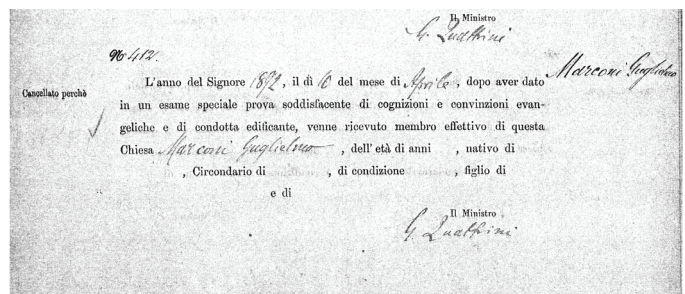 Il Ministro
G. Quattrini
No 412.
Marconi Guglielmo
Cancellato perchè
L'anno del Signore 1892, il dì 10 del mese di Aprile, dopo aver dato
in un esame speciale prova soddisfacente di cognizioni e convinzioni evan-
geliche e di condotta edificante, venne ricevuto membro effettivo di questa
Chiesa Marconi Guglielmo, dell'età di anni , nativo di
, Circondario di , di condizione , figlio di
e di
Il Ministro
G. Quattrini